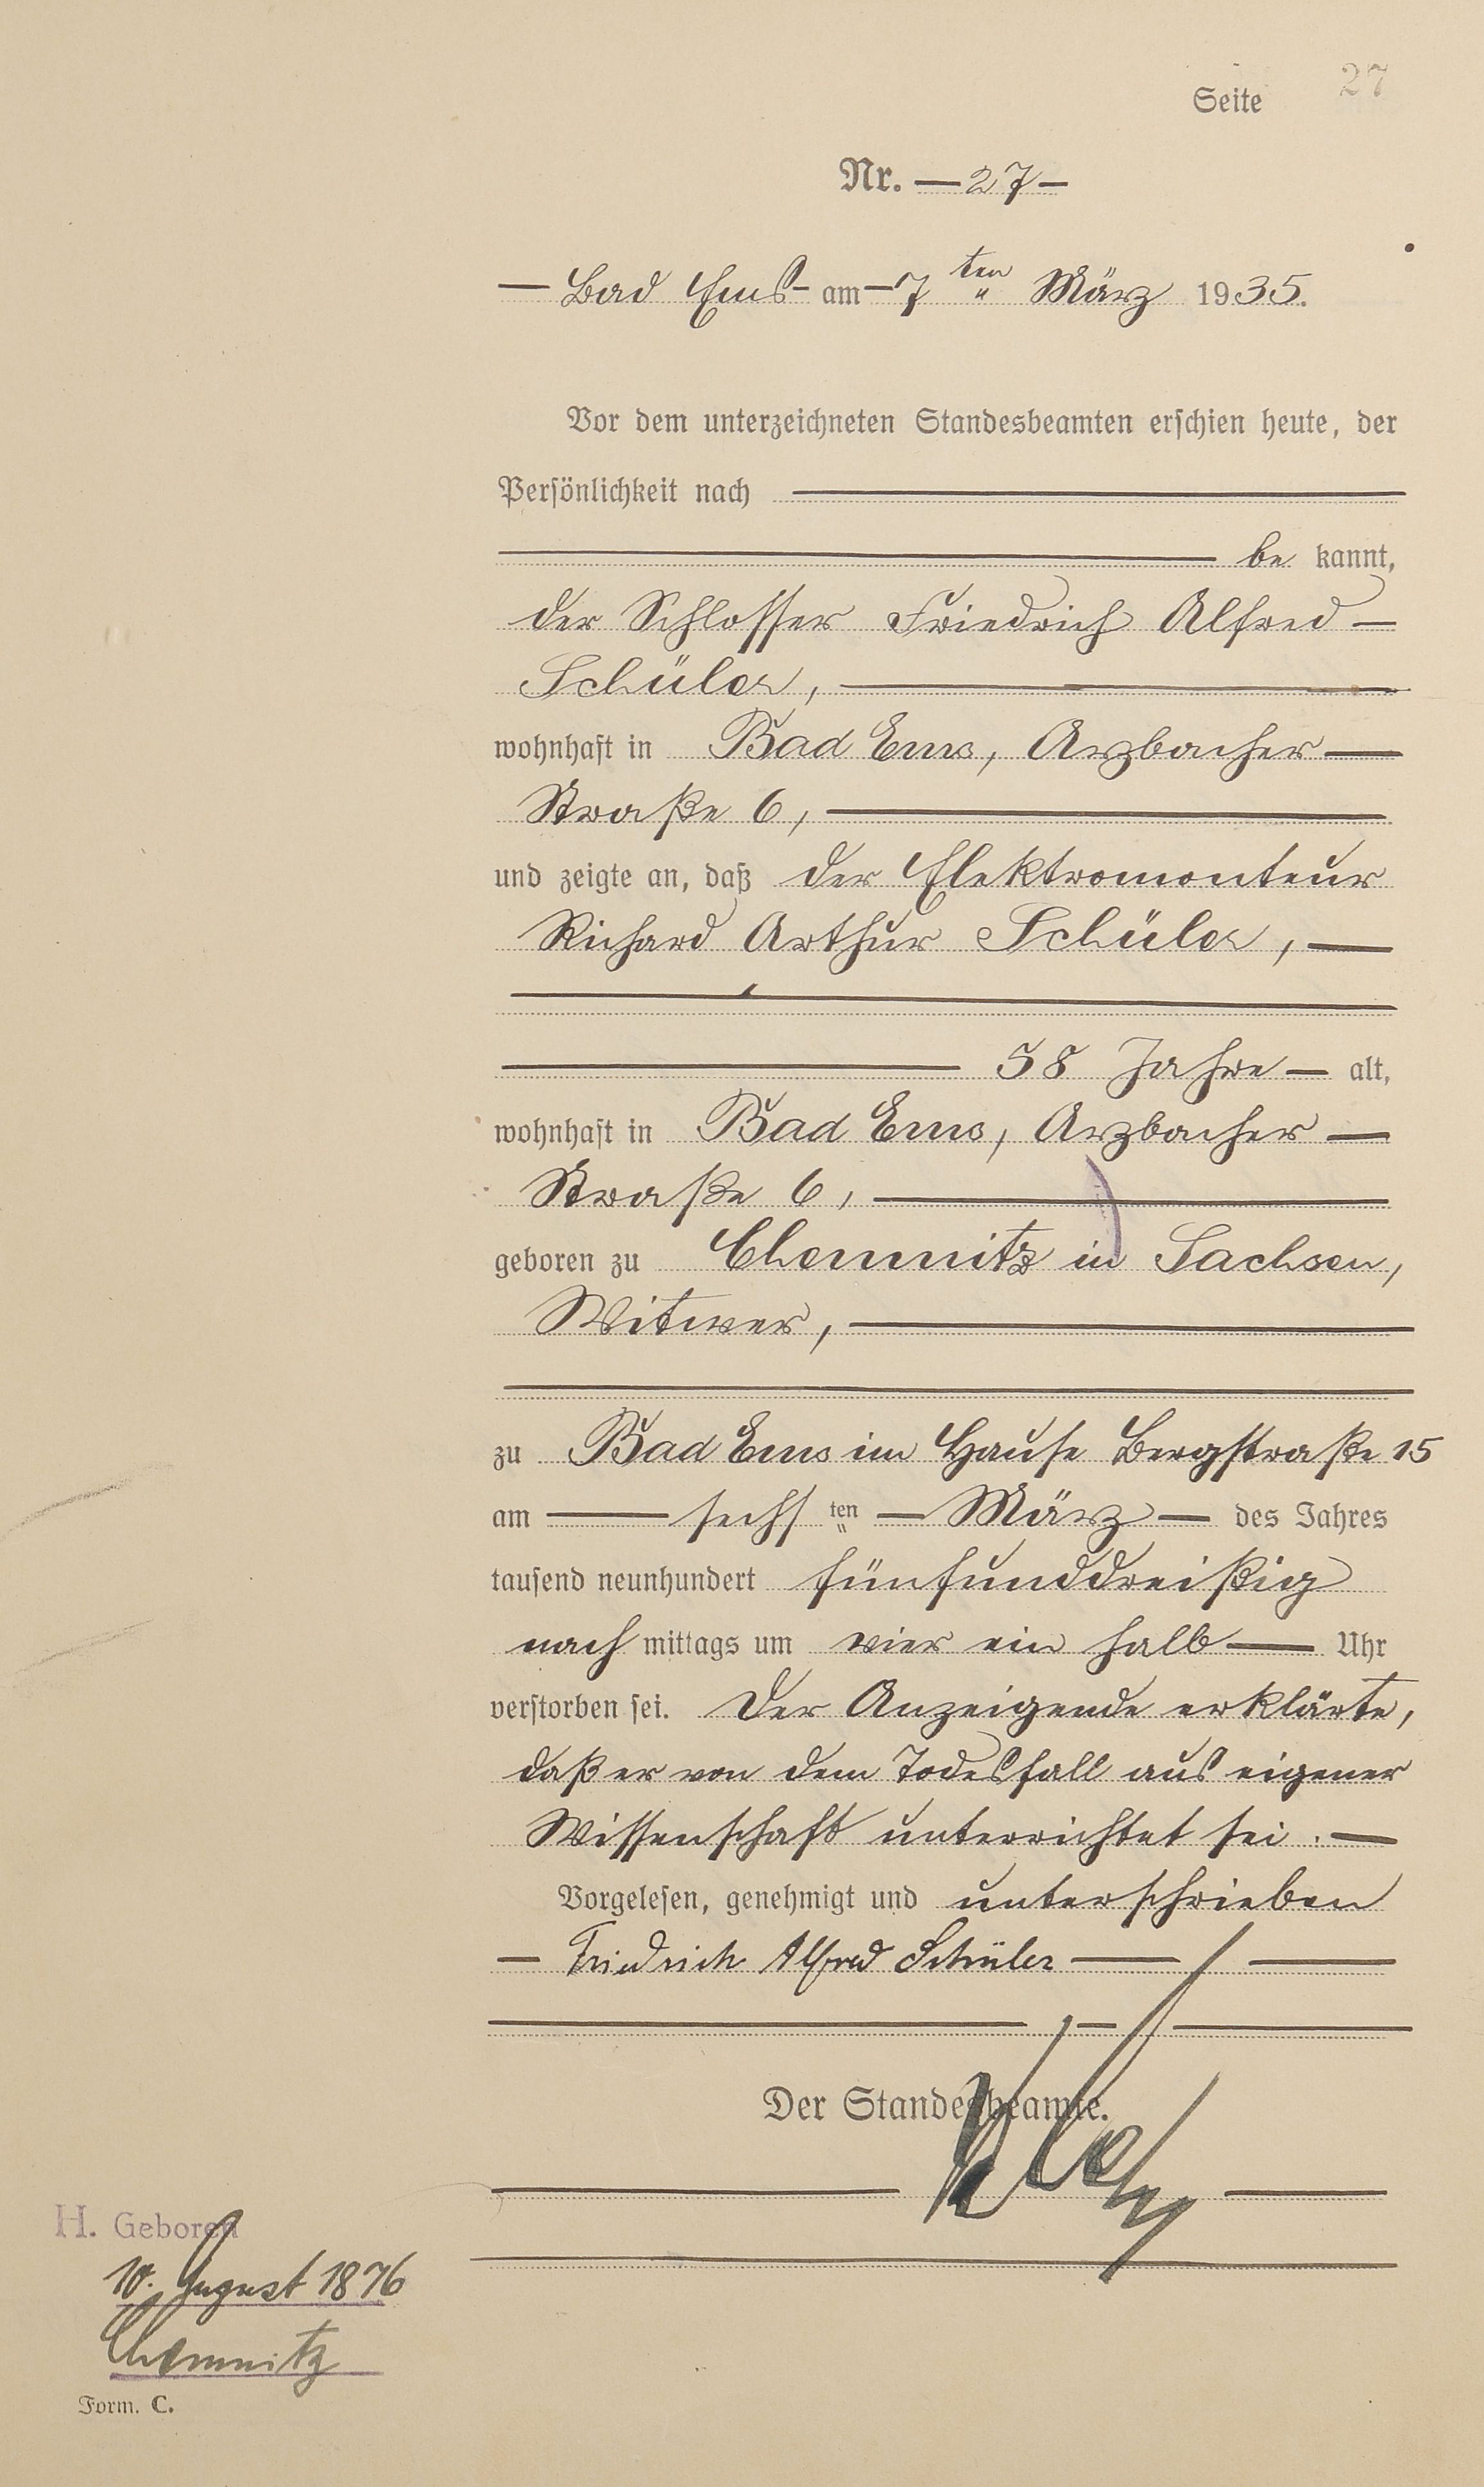 Seite 27
Nr. — 27 —
— Bad Ems — am — 7 ten März 1935.
Vor dem unterzeichneten Standesbeamten erschien heute, der
Persönlichkeit nach
be kannt,
der Schlosser Friedrich Alfred —
Schüler,
wohnhaft in Bad Ems, Arzbacher —
Straße 6,
und zeigte an, daß der Elektromonteur
Richard Arthur Schüler, —
58 Jahre — alt,
wohnhaft in Bad Ems, Arzbacher —
Straße 6,
geboren zu Chemnitz in Sachsen,
Witwer,
zu Bad Ems im Hause Bergstraße 15
am — sechs ten — März — des Jahres
tausend neunhundert fünfunddreißig
nach mittags um vier ein halb — Uhr
verstorben sei. Der Anzeigende erklärte,
daß er von dem Todesfall aus eigener
Wissenschaft unterrichtet sei. —
Vorgelesen, genehmigt und unterschrieben
— Friedrich Alfred Schüler —
Der Standesbeamte.
H. Geboren
10. August 1876
Chemnitz
Form. C.